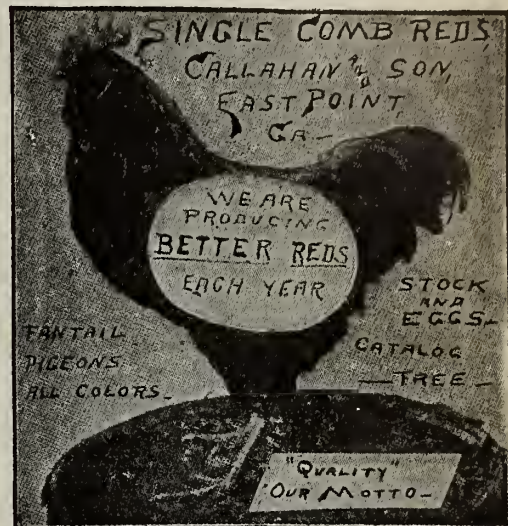 SINGLE COMB REDS,
CALLAHAN AND SON,
EAST POINT,
GA—
WE ARE
PRODUCING
BETTER REDS
EACH YEAR
STOCK
AND
EGGS—
CATALOG
—FREE—
FANTAIL
PIGEONS
ALL COLORS—
"QUALITY"
OUR MOTTO—